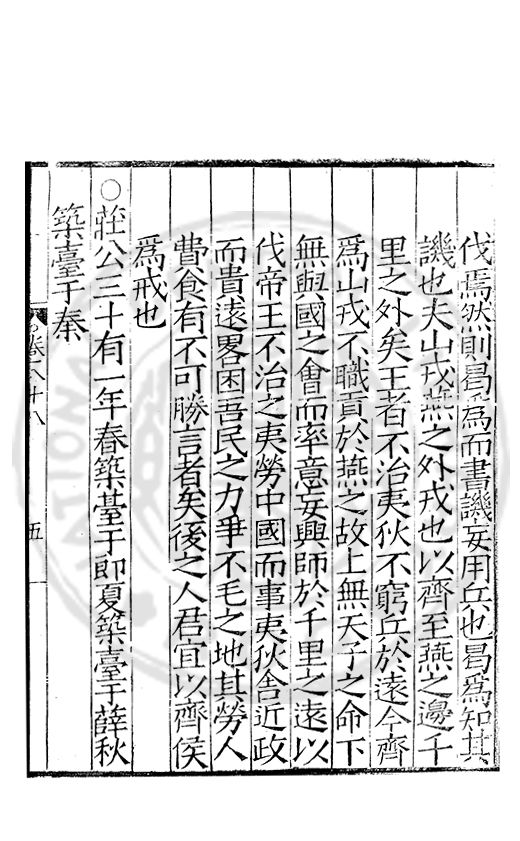 伐焉然則曷爲而書譏妄用兵也曷爲知其
譏也夫山戎燕之外戎也以齊至燕之邊千
里之外矣王者不治夷狄不窮兵於遠今齊
爲山戎不職貢於燕之故上無天子之命下
無與國之會而率意妄興師於千里之遠以
伐帝王不治之夷勞中國而事夷狄舍近政
而貴遠畧困吾民之力爭不毛之地其勞人
費食有不可勝言者矣後之人君宜以齊侯
爲戒也
○莊公三十有一年春築臺于郎夏築臺于薛秋
築臺于秦
五